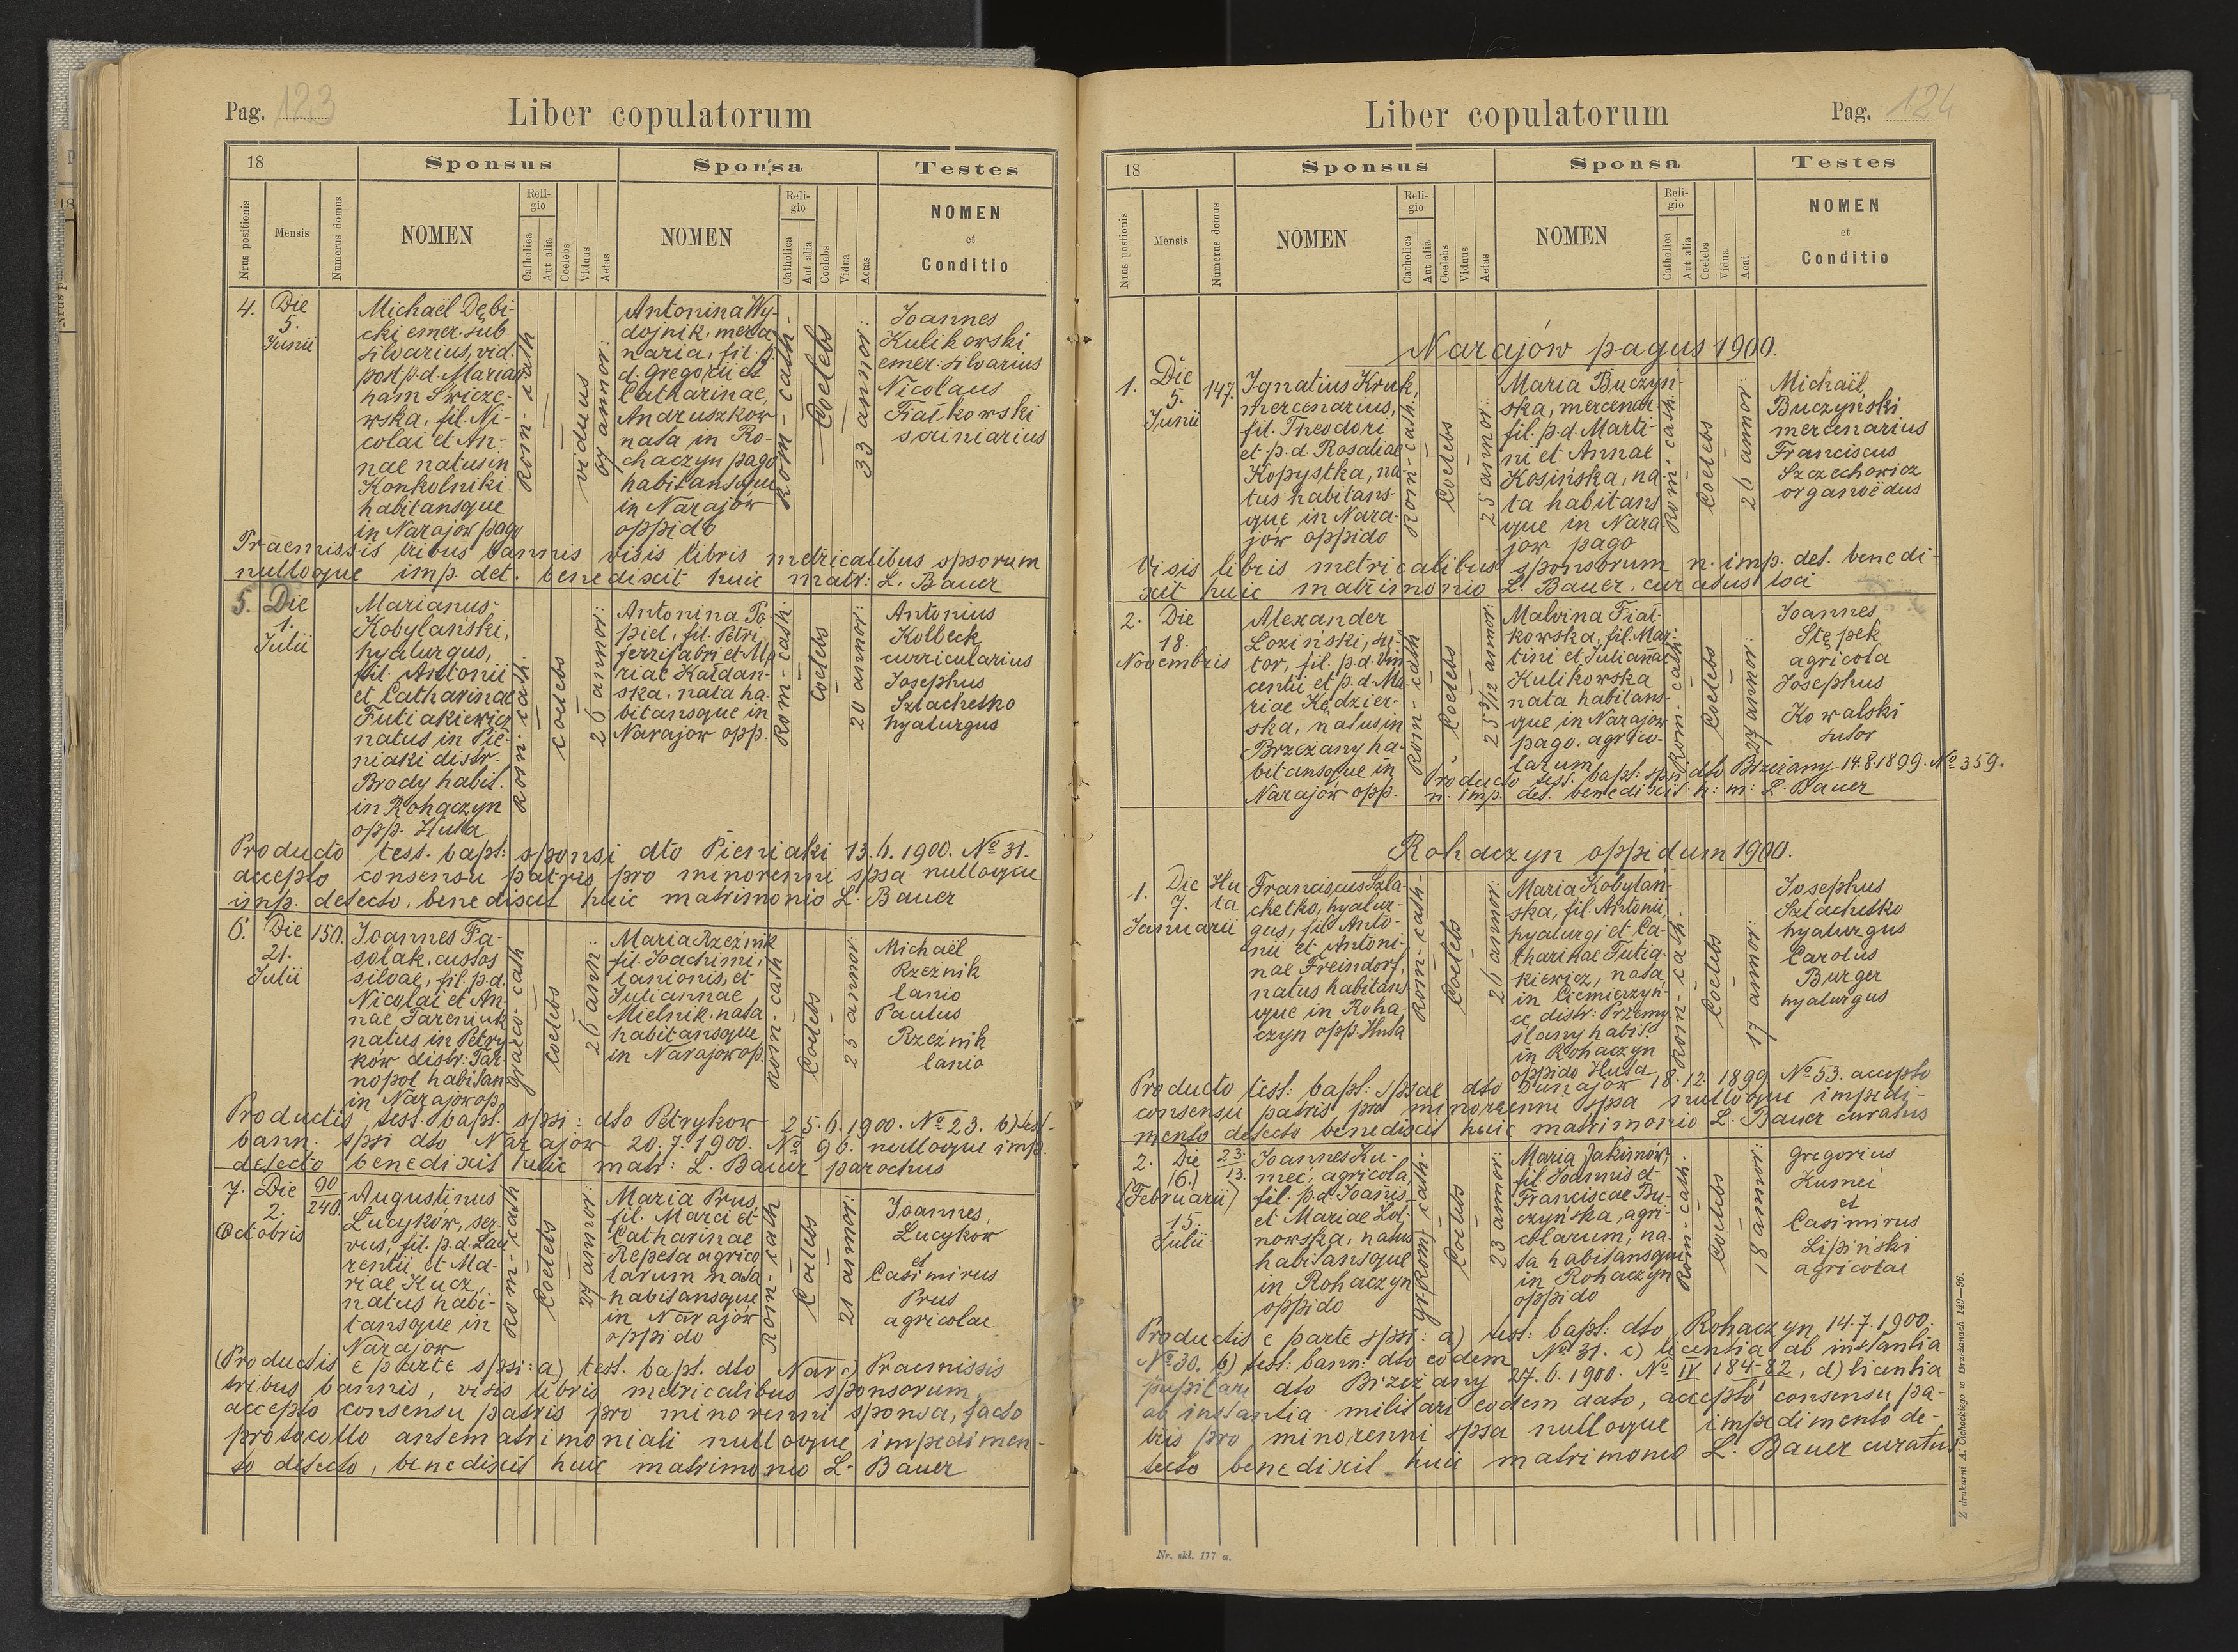 Pag. 123
Liber copulatorum
18
Sponsus
Sponsa
Testes
Nrus positionis
Mensis
Numerus domus
NOMEN
Religio
Catholica
Aut alia
Coelebs
Viduus
Aetas
NOMEN
Religio
Catholica
Aut alia
Coelebs
Vidua
Aetas
NOMEN
et
Conditio
4.
Die
5.
Junii
Michaël Dębi-
cki emer. sub
silvarius, vid.
post p. d. Marian
ham Swicze-
wska, fil. Ni-
colai et An-
nae natus in
Konkolniki
habitansque
in Narajów pago
Rom-cath
viduus
67 annor:
Antonina Wy-
dojnik, merce
naria, fil. p.
d. Gregorii et
Catharinae,
Andruszkow
nata in Ro-
chaczyn pago
habitansque
in Narajów
oppido
Rom-cath-
Coelebs
33 annor:
Joannes
Kulikowski
emer. silvarius
Nicolaus
Fiałkowski
scriniarius
Praemissis tribus bannis visis libris metricalibus spsorum
nulloque imp. det. benedixit huic matr: L. Bauer
5.
Die
1.
Julii
Marianus
Kobylański,
hyalurgus,
fil. Antonii
et Catharinae
Futiakiewicz
natus in Pie-
niaki distr.
Brody habit.
in Rohaczyn
opp. Huta
Rom-cath.
coelebs
26 annor:
Antonina Po-
piel, fil. Petri
ferrifabri et Ma
riae Kałdan-
ska, nata ha-
bitansque in
Narajow opp.
Rom-cath-
coelebs
20 annor:
Antonius
Kolbeck
curricularius
Josephus
Szlachetko
hyalurgus
Producto test. bapt: sponsi dto Pieniaki 13.6.1900. No 31.
accepto consensu patris pro minorenni spsa nulloque
imp. detecto, benedixit huic matrimonio L. Bauer
6.
Die
21.
Julii
150.
Joannes Fa-
solak, custos
silvae, fil. p. d.
Nicolai et An-
nae Tareniuk
natus in Petry
ków distr: Tar-
nopol habitan
in Narajow op.
graeco-cath
coelebs
26 ann:
Maria Rzeźnik
fil. Joachimi,
lanionis, et
Juliannae
Mielnik, nata
habitansque
in Narajow op.
Rom-cath
Coelebs
25 annor:
Michaël
Rzeźnik
lanio
Paulus
Rzeźnik
lanio
Productis, test. bapt. spsi: dto Petrykow 25.6.1900. No 23. b) test.
bann. spsi dto Narajów 20.7.1900. No 96. nulloque imp.
detecto benedixit huic matr: L. Bauer parochus
7.
Die
2.
Octobris
90
240.
Augustinus
Łucyków, ser-
vus, fil. p. d. Lau
rentii et Ma-
riae Kucz,
natus habi-
tansque in
Narajow
Rom-cath
Coelebs
27 annor:
Maria Prus,
fil. Marci et
Catharinae
Repeta agrico
larum nata
habitansque
in Narajów
oppido
Rom-cath
Coelebs
21 annor:
Joannes,
Lucykow
et
Casimirus
Prus
agricolae
(Productis e parte spsi: a) test. bapt. dto Nar:) Praemissis
tribus bannis, visis libris metricalibus sponsorum,
accepto consensu patris pro minorenni sponsa, facto
protocollo antematrimoniali nulloque impedimen-
to detecto, benedixit huic matrimonio L. Bauer
Liber copulatorum
Pag. 124
18
Sponsus
Sponsa
Testes
Nrus postionis
Mensis
Numerus domus
NOMEN
Religio
Catholica
Aut alia
Coelebs
Viduus
Aetas
NOMEN
Religio
Catholica
Aut alia
Coelebs
Vidua
Aeat
NOMEN
et
Conditio
Narajów pagus 1900.
1.
Die
5.
Junii
147.
Ignatius Kruk,
mercenarius,
fil. Theodori
et p. d. Rosaliae
Kopystka, na
tus habitans-
que in Nara-
jów oppido
Rom-cath.
Coelebs
25 annor:
Maria Buczyń-
ska, mercenar.
fil. p. d. Marti-
ni et Annae
Kosińska, na-
ta habitans
que in Nara
jow pago
Rom-cath.
Coelebs
26 annor:
Michaël
Buczyński
mercenarius
Franciscus
Szczechowicz
organoëdus
Visis libris metricalibus sponsorum n. imp. det. benedi-
xit huic matrimonio L. Bauer, curatus loci
2.
Die
18.
Novembris
Alexander
Łoziński, su-
tor, fil. p. d. Vin
centii et p. d. Ma-
riae Kędzier-
ska, natus in
Brzeżany ha-
bitansque in
Narajów opp.
Rom-cath
Coelebs
25 3/12 annor:
Malvina Fiał-
kowska, fil. Mar-
tini et Juliannae
Kulikowska
nata habitans-
que in Narajow
pago. agrico-
larum
Rom-cath.
Coelebs
27 annor:
Joannes
Stępek
agricola
Josephus
Kowalski
sutor
Producto test. bapt: spsi dto Brzeżany 14.8.1899. No 359.
n. imp. det. benedixit h: m: L. Bauer
Rohaczyn oppidum 1900.
1.
Die
7.
Januarii
Hu
ta
Franciscus Szla-
chetko, hyalur-
gus, fil. Anto-
nii et Antoni-
nae Freindorf,
natus habitans
que in Roha-
czyn opp. Huta
Rom-cath-
Coelebs
26 annor:
Maria Kobylań-
ska, fil. Antonii,
hyalurgi et Ca-
tharinae Futia-
kiewicz, nata
in Ciemierzyń-
ce distr: Przemy-
ślany habit.
in Rohaczyn
oppido Huta
Rom-cath.
Coelebs
17 annor:
Josephus
Szlachetko
hyalurgus
Carolus
Burger
hyalurgus
Producto test: bapt: spsae dto Dunajów 18.12.1899 No 53. accepto
consensu patris pro minorenni spsa nulloque impedi-
mento detecto benedixit huic matrimonio L. Bauer curatus
2.
Die
(6.)
(Februarii)
15.
Julii
23.
13.
Joannes Ku-
meć, agricola,
fil. p. d. Joannis
et Mariae Łot-
nowska, natus
habitansque
in Rohaczyn
oppido
gr(rom) cath-
Coelebs
23 annor:
Maria Jakimów,
fil. Joannis et
Franciscae Bu-
czyńska, agri-
colarum, na-
ta habitansque
in Rohaczyn
oppido
Rom-cath-
Coelebs
18 annor:
Gregorius
Kumeć
et
Casimirus
Lipiński
agricolae
Productis e parte spsi: a) test: bapt: dto Rohaczyn 14.7.1900.
No 30. b) test: bann: dto eodem No 31. c) licentia ab instantia
pupilari dto Brzeżany 27.6.1900. No IV 184-82, d) licentia
ab instantia militari eodem dato, accepto consensu pa-
tris pro minorenni spsa nulloque impedimento de-
tecto benedixit huic matrimonio L. Bauer curatus
Nr. skł. 177 a.
Z drukarni A. Cichockiego w Brzeżanach 149—96.